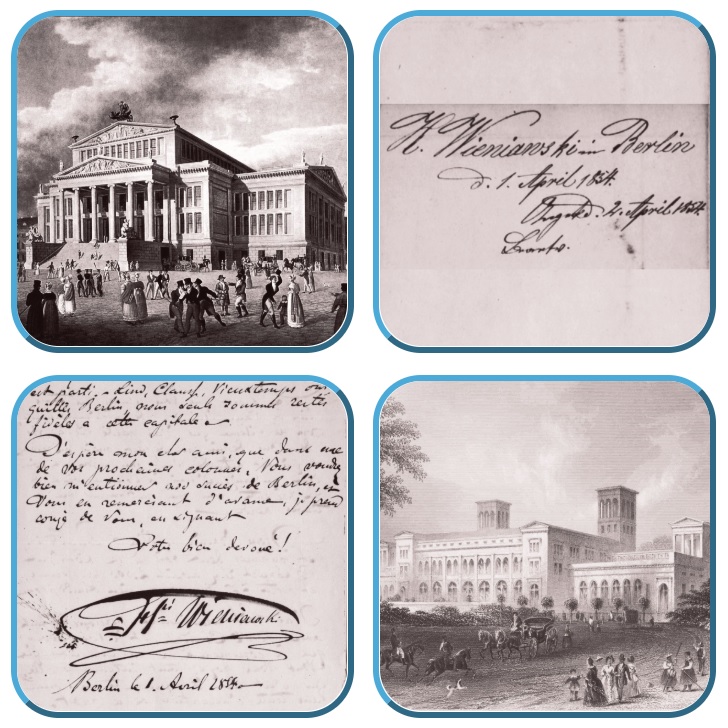 H. Wieniawski in Berlin
d. 1. April 1854.
d. 2. April 1854.
est parti. Lind, Clauss, Vieuxtemps ont
quittés Berlin, nous seuls sommes restés
fidèles a cette capitale
J'espère mon cher ami, que dans une
de vos prochaines colonnes, Vous voudrez
bien m'entionner nos succès de Berlin, et
Vous en remerciant d'avance, je prend
congé de Vous, en signant
Votre bien devoué!
Wieniawski
Berlin le 1. Avril 1854